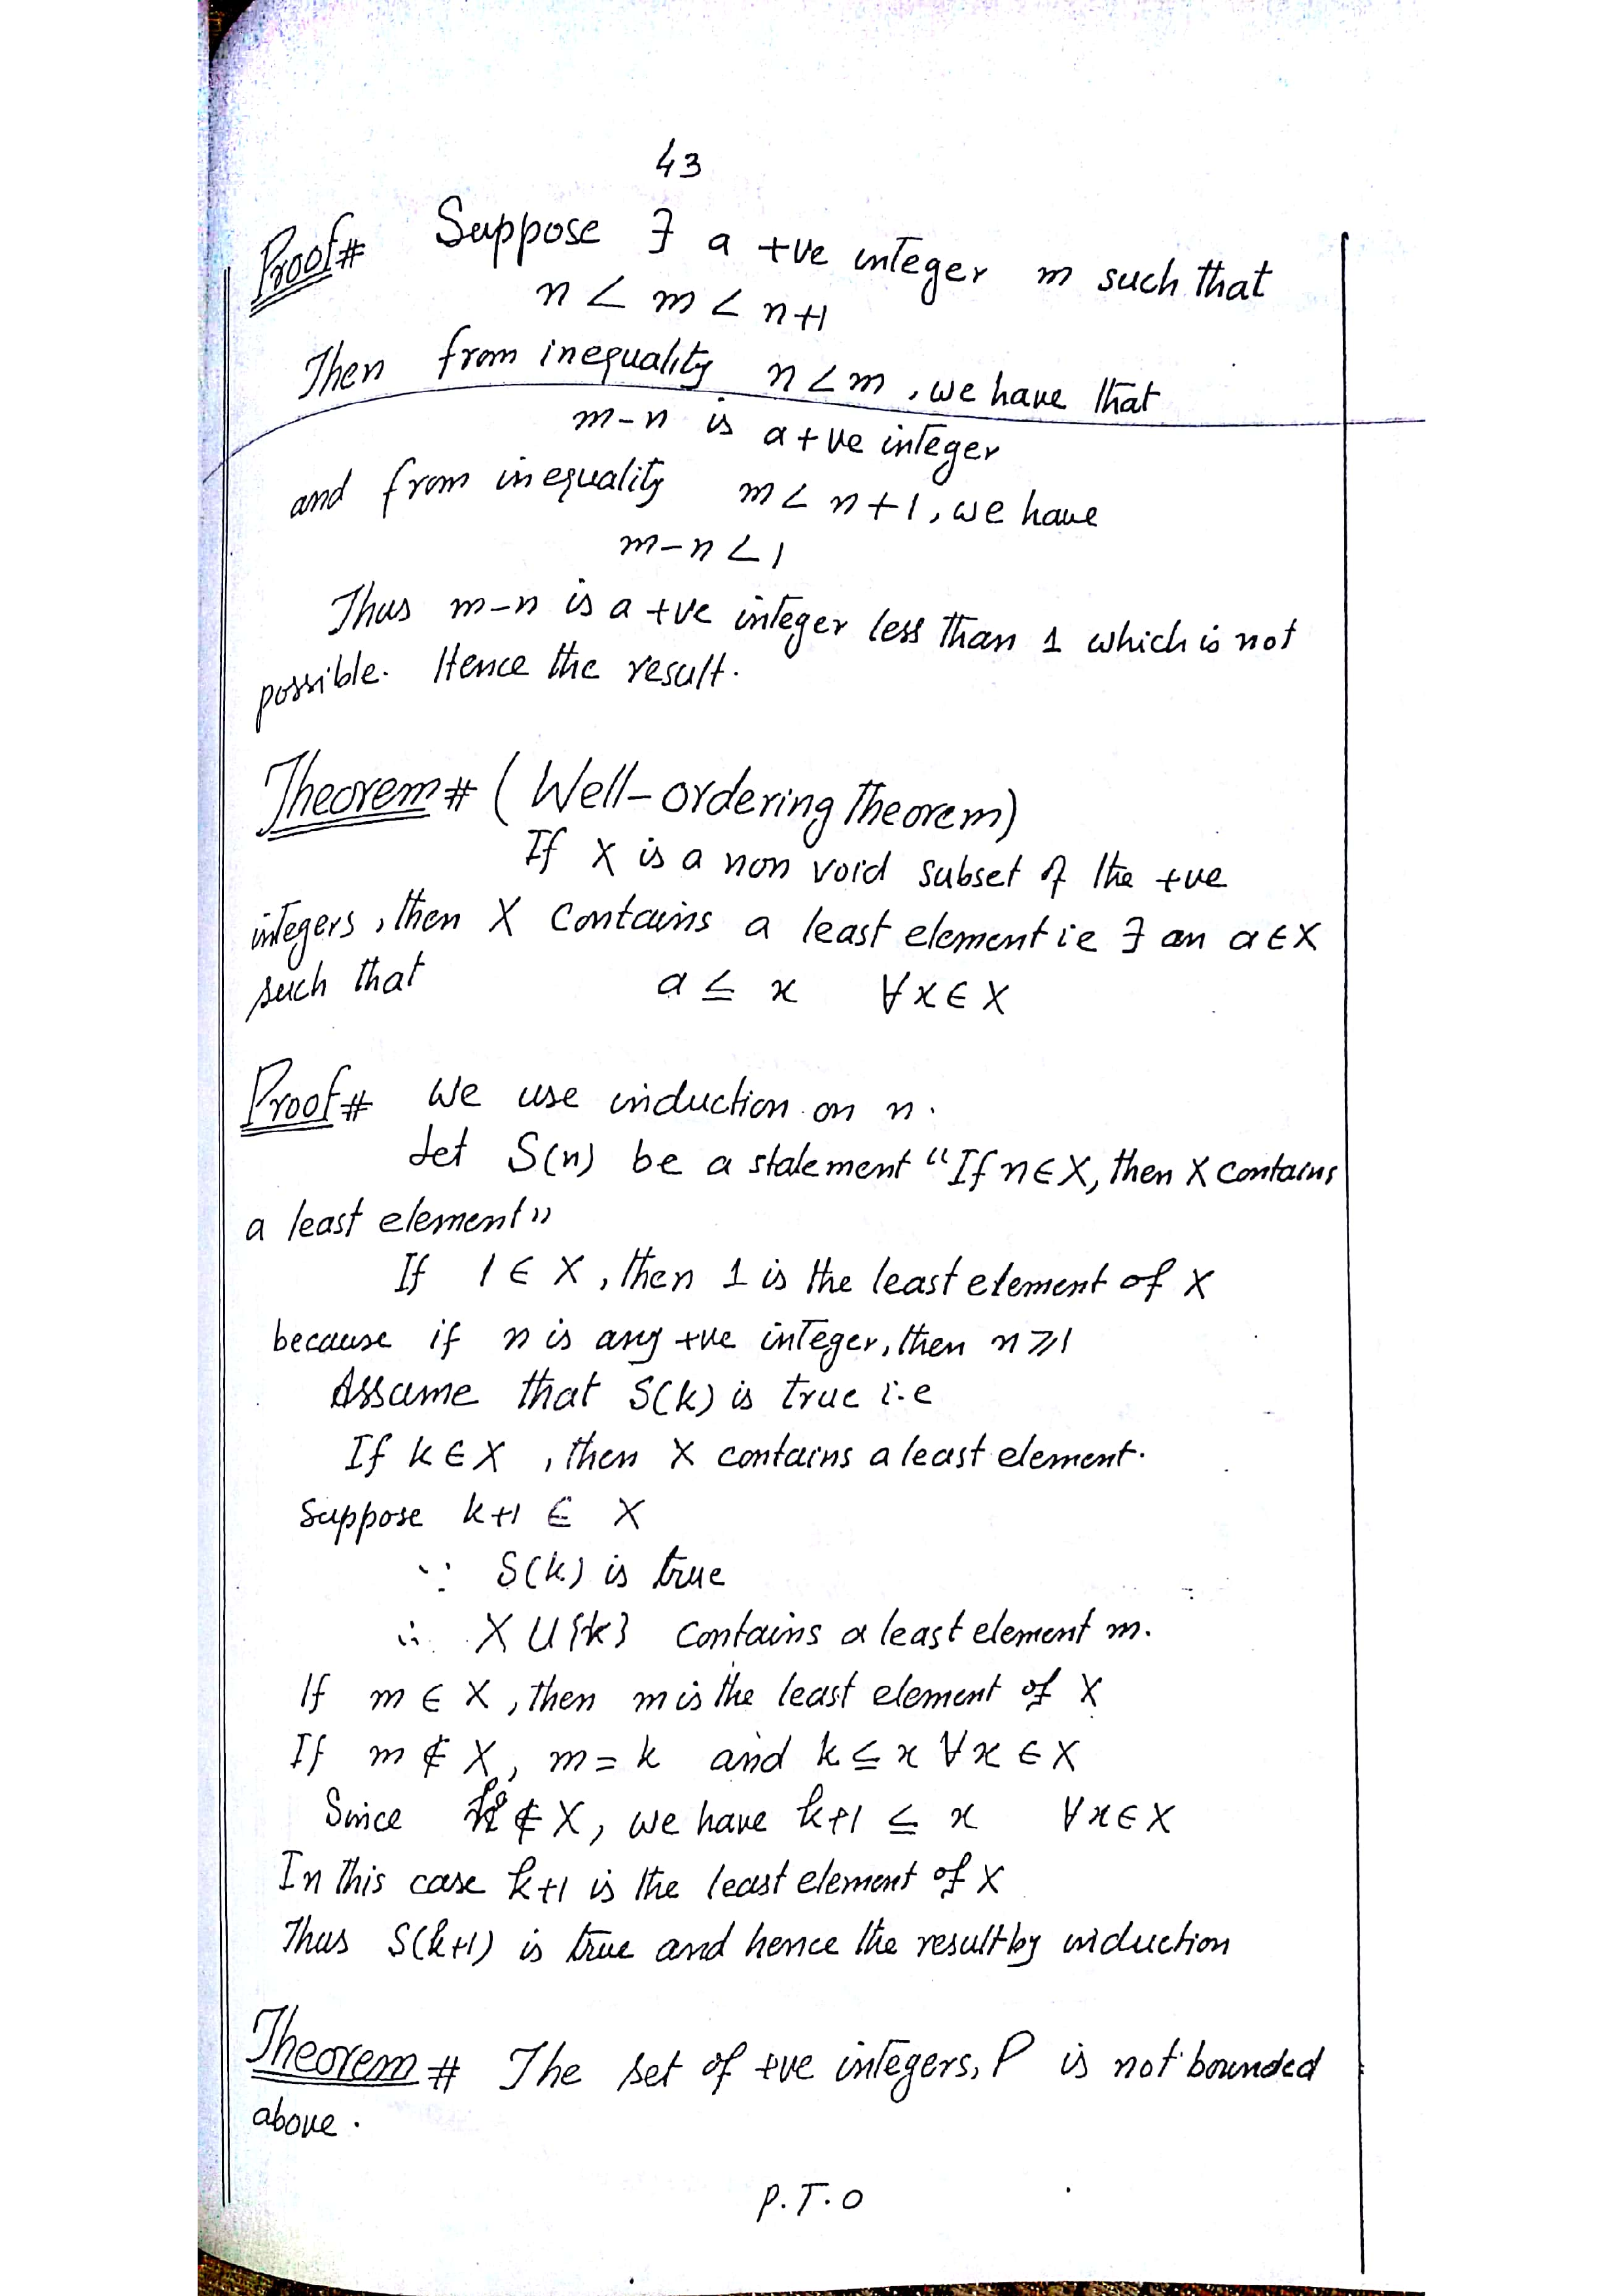 43
Proof# Suppose ∃ a +ve integer m such that
n < m < n+1
Then from inequality n < m, we have that
m-n is a +ve integer
and from inequality m < n+1, we have
m-n < 1
Thus m-n is a +ve integer less than 1 which is not
possible. Hence the result.
Theorem# (Well-ordering Theorem)
If X is a non void subset of the +ve
integers, then X contains a least element ie ∃ an a ∈ X
such that a ≤ x ∀ x ∈ X
Proof# We use induction on n.
Let S(n) be a statement "If n ∈ X, then X contains
a least element"
If 1 ∈ X, then 1 is the least element of X
because if n is any +ve integer, then n ≥ 1
Assume that S(k) is true i.e
If k ∈ X, then X contains a least element.
Suppose k+1 ∈ X
∵ S(k) is true
∴ X ∪ {k} contains a least element m.
If m ∈ X, then m is the least element of X
If m ∉ X, m = k and k ≤ x ∀ x ∈ X
Since k ∉ X, we have k+1 ≤ x ∀ x ∈ X
In this case k+1 is the least element of X
Thus S(k+1) is true and hence the result by induction
Theorem# The set of +ve integers, P is not bounded
above.
P.T.O